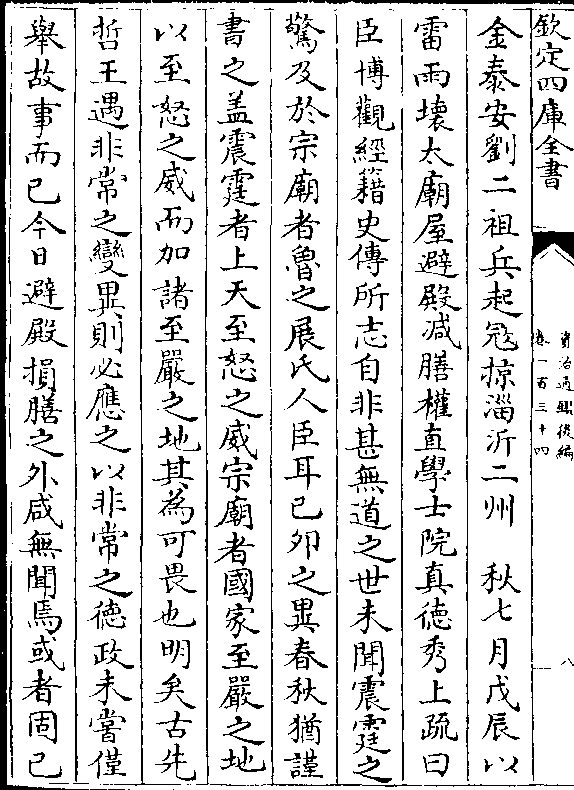 欽定四庫全書
資治通鑑後編
卷一百三十四
八
金泰安劉二祖兵起寇掠淄沂二州　秋七月戊辰以
雷雨壞太廟屋避殿减膳權直學士院真徳秀上疏曰
臣博觀經籍史傳所志自非甚無道之世未聞震霆之
驚及於宗廟者魯之展氏人臣耳已夘之異春秋猶謹
書之盖震霆者上天至怒之威宗廟者國家至嚴之地
以至怒之威而加諸至嚴之地其為可畏也明矣古先
哲王遇非常之變異則必應之以非常之徳政未嘗僅
舉故事而已今日避殿損膳之外咸無聞焉或者固已